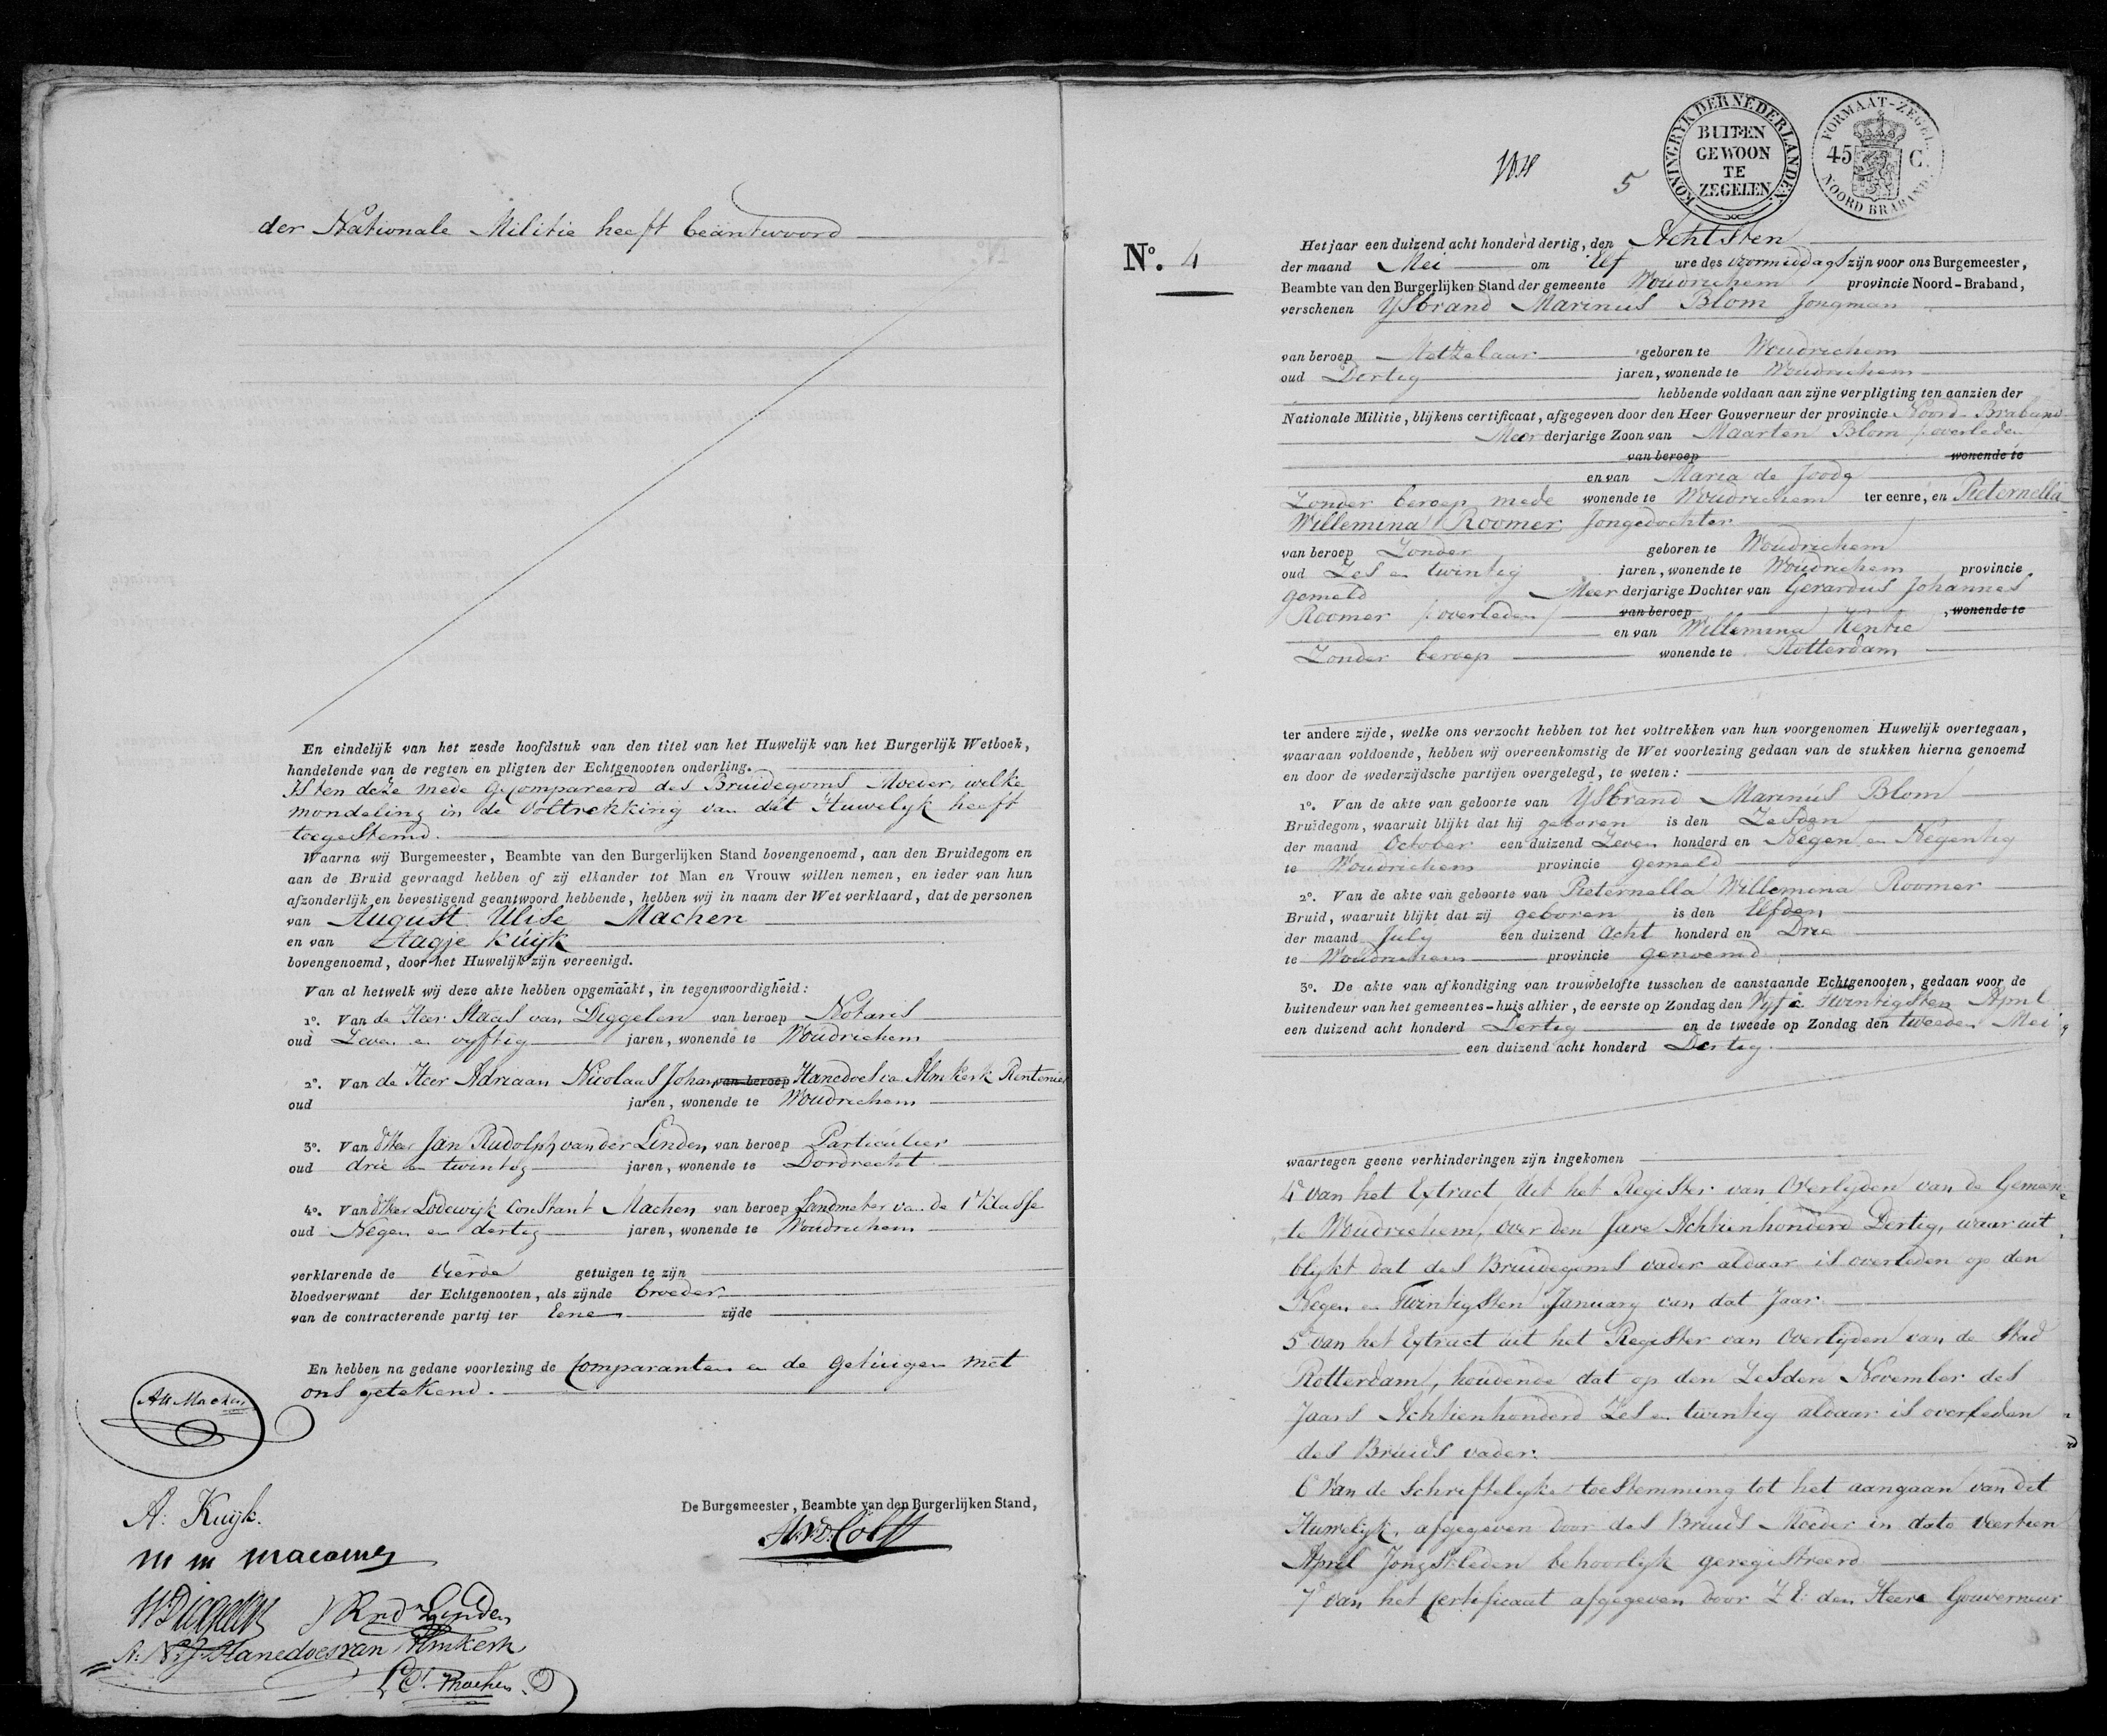 der Nationale Militie heeft beäntwoord
En eindelijk van het zesde hoofdstuk van den titel van het Huwelijk van het Burgerlijk Wetboek,
handelende van de regten en pligten der Echtgenooten onderling.
Is ten deze mede gecompareerd des Bruidegoms Moeder, welke
mondeling in de voltrekking van dit Huwelyk heeft
toegestemd.
Waarna wij Burgemeester, Beambte van den Burgerlijken Stand bovengenoemd, aan den Bruidegom en
aan de Bruid gevraagd hebben of zij elkander tot Man en Vrouw willen nemen, en ieder van hun
afzonderlijk en bevestigend geantwoord hebbende, hebben wij in naam der Wet verklaard, dat de personen
van August Ulise Machen
en van Aagje Kuijk
bovengenoemd, door het Huwelijk zijn vereenigd.
Van al hetwelk wij deze akte hebben opgemaakt, in tegenwoordigheid:
1o. Van de Heer Staas van Diggelen van beroep Notaris
oud Zeven en vyftig jaren, wonende te Woudrichem
2o. Van de Heer Adriaan Nicolaas Johan van beroep Hanedoes van Almkerk Rentenier
oud jaren, wonende te Woudrichem
3o. Van d'Heer Jan Rudolph van der Linden van beroep Particulier
oud drie en twintig jaren, wonende te Dordrecht
4o. Van d'Heer Lodewijk Constant Machen van beroep Landmeter van de 1e klasse
oud Negen en dertig jaren, wonende te Woudrichem
verklarende de vierde getuigen te zijn
bloedverwant der Echtgenooten, als zijnde broeder
van de contracterende partij ter Eene zijde
En hebben na gedane voorlezing de Comparanten en de getuigen met
ons getekend.
AU Machen
A: Kuijk.
De Burgemeester, Beambte van den Burgerlijken Stand,
S V Diggelen J R vd Linden
A: N: J: Hanedoes van Almkerk
L C Machen
5
KONINGRYK DER NEDERLANDEN
BUITEN
GEWOON
TE
ZEGELEN
FORMAAT-ZEGEL
45 C.
NOORD BRABAND
No. 4
Het jaar een duizend acht honderd dertig, den Achtsten
der maand Mei om Elf ure des voormiddags zijn voor ons Burgemeester,
Beambte van den Burgerlijken Stand der gemeente Woudrichem provincie Noord-Braband,
verschenen Ysbrand Marinus Blom Jongman
van beroep Metzelaar geboren te Woudrichem
oud Dertig jaren, wonende te Woudrichem
hebbende voldaan aan zijne verpligting ten aanzien der
Nationale Militie, blijkens certificaat, afgegeven door den Heer Gouverneur der provincie Noord-Braband
Meerderjarige Zoon van Maarten Blom /overleden/
van beroep wonende te
en van Maria de Joode
Zonder beroep mede wonende te Woudrichem ter eenre, en Pieternella
Willemina Roomer Jongedochter
van beroep Zonder geboren te Woudrichem
oud Zes en twintig jaren, wonende te Woudrichem provincie
gemeld Meerderjarige Dochter van Gerardus Johannes
Roomer /overleden/ van beroep, wonende te
en van Willemina Kentie
Zonder beroep wonende te Rotterdam
ter andere zijde, welke ons verzocht hebben tot het voltrekken van hun voorgenomen Huwelijk overtegaan,
waaraan voldoende, hebben wij overeenkomstig de Wet voorlezing gedaan van de stukken hierna genoemd
en door de wederzijdsche partijen overgelegd, te weten:
1o. Van de akte van geboorte van Ysbrand Marinus Blom
Bruidegom, waaruit blijkt dat hij geboren is den Zesden
der maand October een duizend Zeven honderd en Negen en Negentig
te Woudrichem provincie gemeld
2o. Van de akte van geboorte van Pieternella Willemina Roomer
Bruid, waaruit blijkt dat zij geboren is den Elfden
der maand July een duizend Acht honderd en Drie
te Woudrichem provincie genoemd
3o. De akte van afkondiging van trouwbelofte tusschen de aanstaande Echtgenooten, gedaan voor de
buitendeur van het gemeentes-huis alhier, de eerste op Zondag den Vyf en twintigsten April
een duizend acht honderd Dertig en de tweede op Zondag den tweeden Mei
een duizend acht honderd Dertig.
waartegen geene verhinderingen zijn ingekomen
4o van het Extract Uit het Register van Overlyden van de Gemeen-
te Woudrichem, over den Jare Achtienhonderd Dertig, waar uit
blykt dat des Bruidegoms vader aldaar is overleden op den
Negen en Twintigsten January van dat Jaar.
5o van het Extract uit het Register van Overlyden van de Stad
Rotterdam, houdende dat op den Zesden November des
Jaars Achtienhonderd Zes en twintig aldaar is overleden
des Bruids vader.
6o Van de Schriftelyke toestemming tot het aangaan van dit
Huwelyk, afgegeven door des Bruids Moeder in dato Veertien
April Jongstleden behoorlyk geregistreerd
7o van het certificaat afgegeven door Z E: den Heere Gouverneur